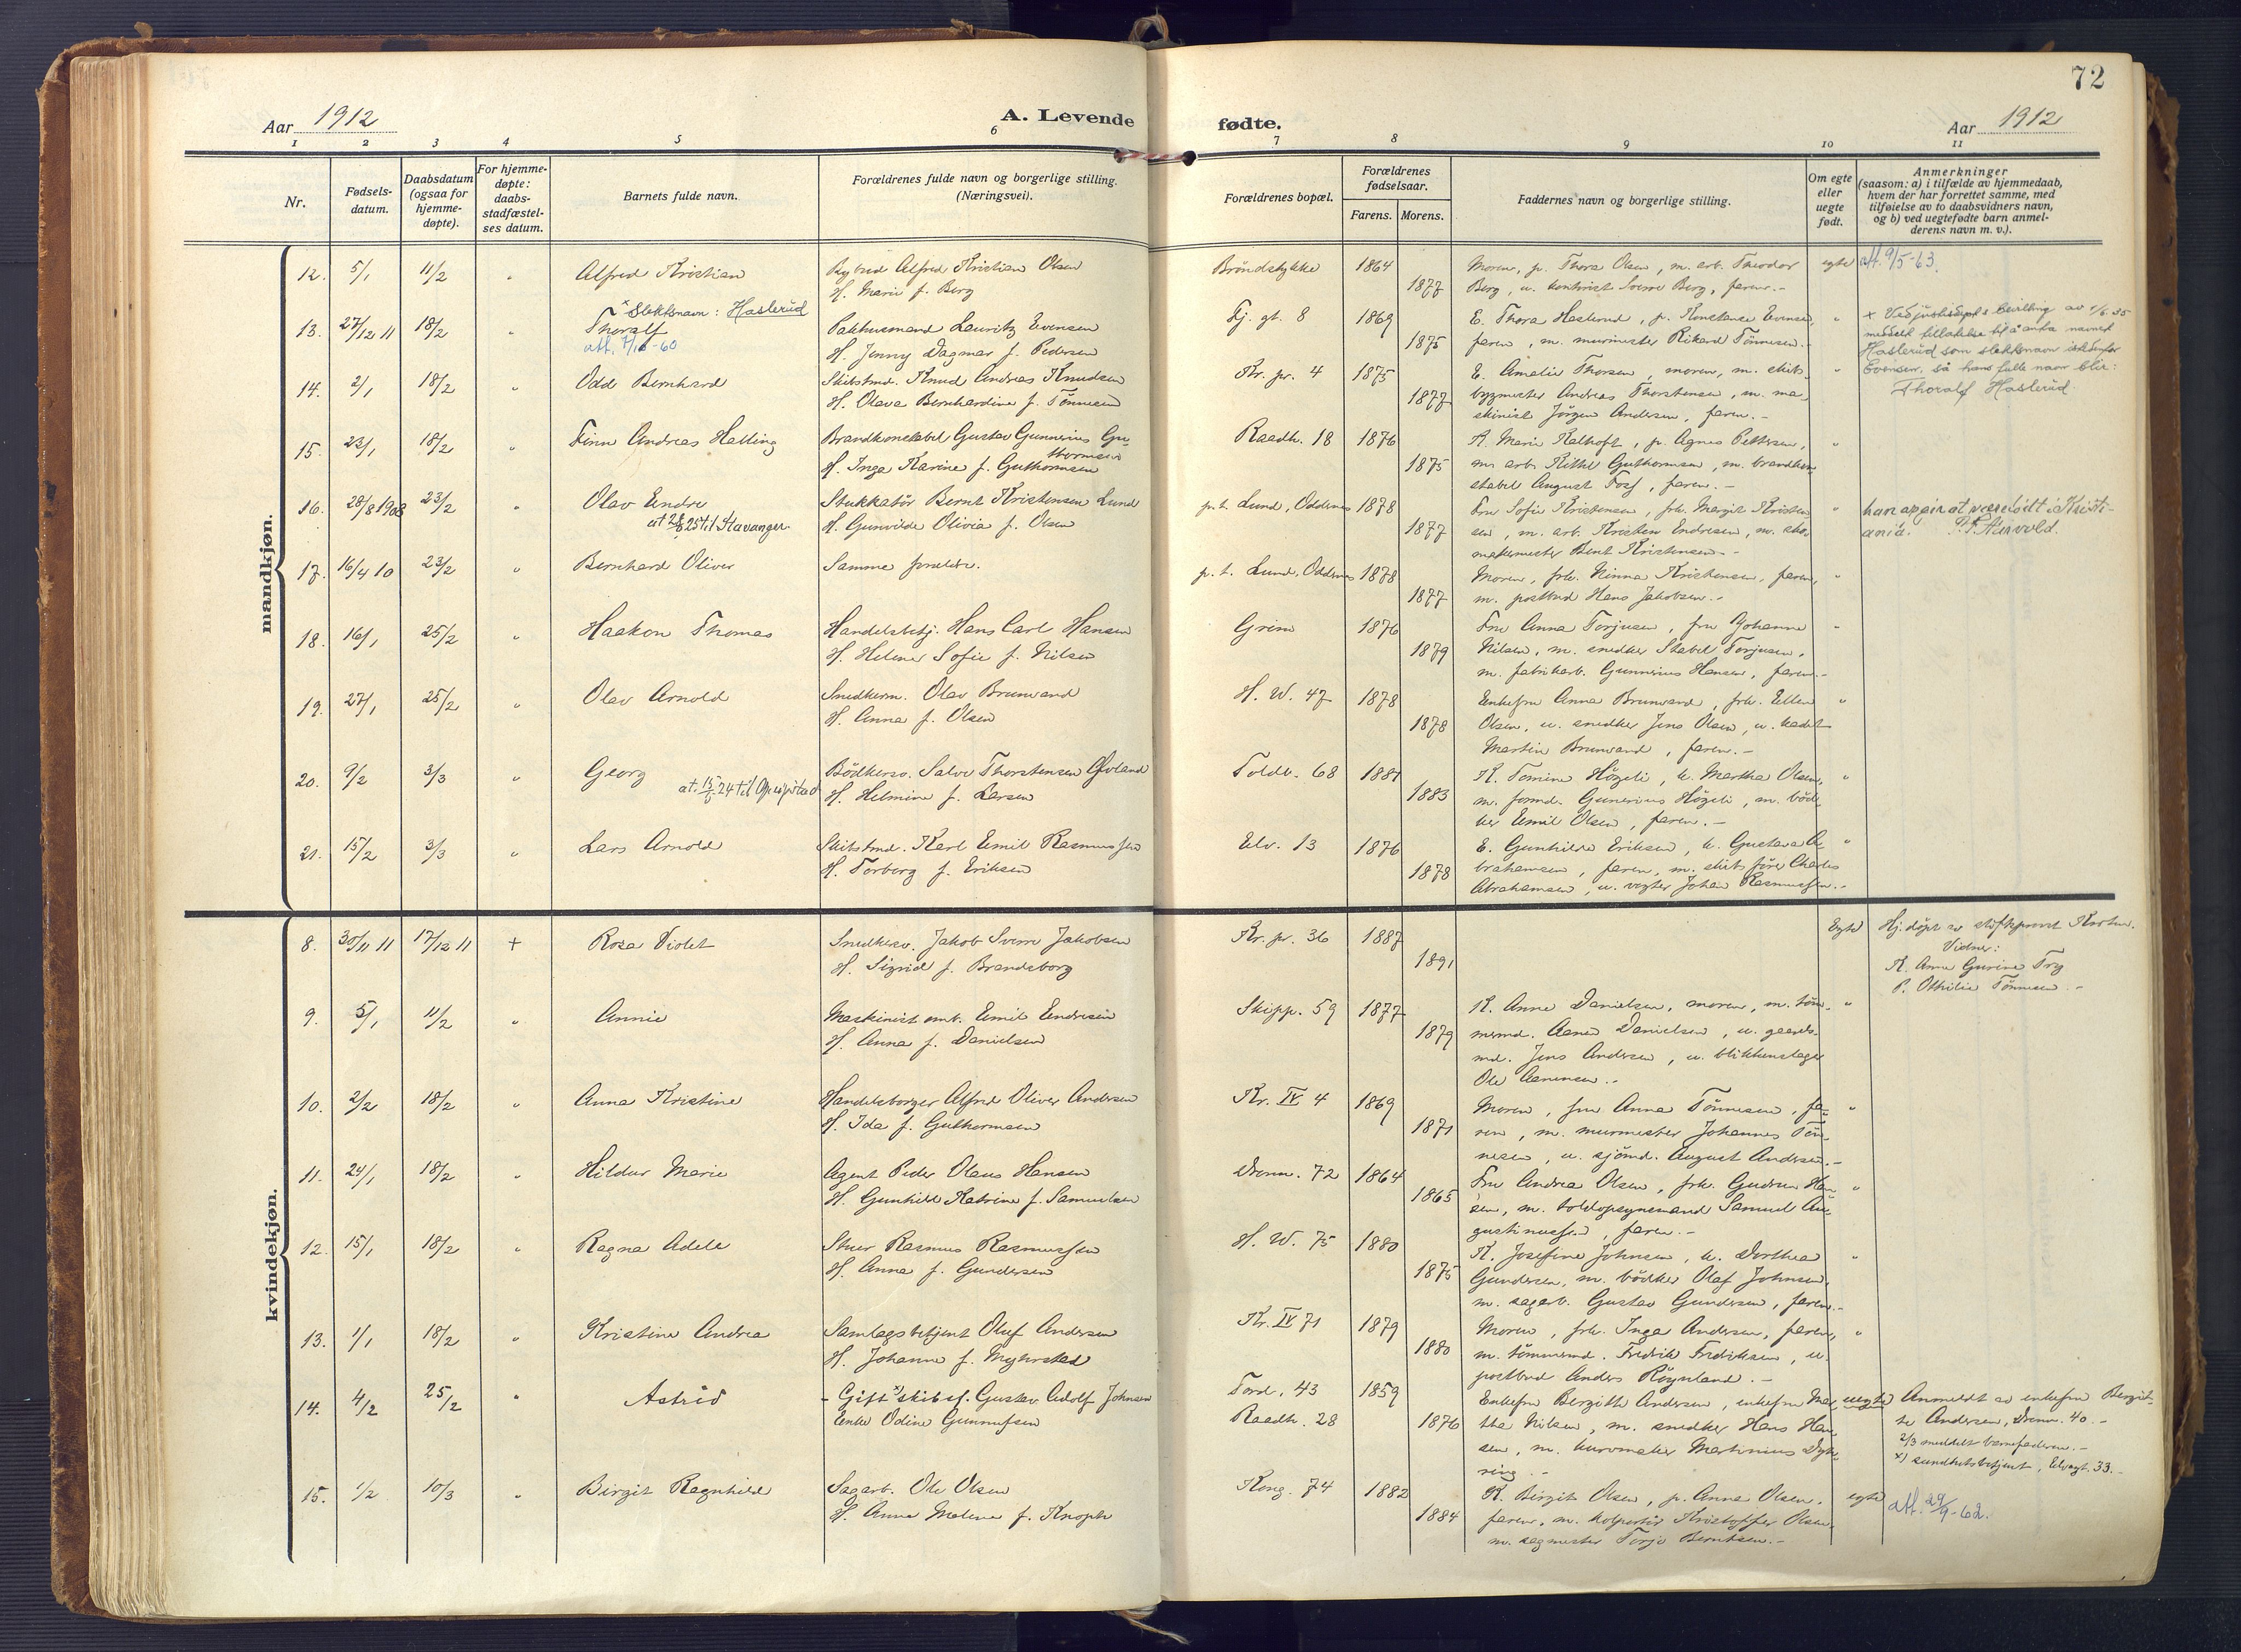 72
Aar 1912
A. Levende
fødte.
Aar 1912
1 2 3 4 5 6 7 8 9 10 11
Nr.
Fødsels-
datum.
Daabsdatum
(ogsaa for
hjemme-
døpte).
For hjemme-
døpte:
daabs-
stadfæstel-
ses datum.
Barnets fulde navn.
Forældrenes fulde navn og borgerlige stilling.
(Næringsvei).
Forældrenes bopæl.
Forældrenes
fødselsaar.
Farens. Morens.
Faddernes navn og borgerlige stilling.
Om egte
eller
uegte
født.
Anmerkninger
(saasom: a) i tilfælde av hjemmedaab,
hvem der har forrettet samme, med
tilføielse av to daabsvidners navn,
og b) ved uegtefødte barn anmel-
derens navn m. v.).
mandkjøn.
12. 5/1 11/2 " Alfred Kristian
Bybud Alfred Kristian Olsen
H. Marie f. Berg
Brøndstykke 1864
1877
Moren, p. Thora Olsen, m. arb. Theodor
Berg, u. kontorist Sverre Berg, faren.-
egte att. 9/5-63.
x Slektsnavn: Haslerud
13. 27/12 11 18/2 " Thoralf
att. 7/10-60
Pakhusmand Lauritz Evensen
H. Jenny Dagmar f. Pedersen
Fj. gt. 8 1869
1875
E. Thora Haslerud, p. Konstanse Evensen,
faren, m. murmester Rikard Tønnesen.-
"
x Ved justisdepts bevilling av 1/6 35
meddelt tillatelse til å anta navnet
Haslerud som slektsnavn istedenfor
Evensen, så hans fulle navn blir:
Thoralf Haslerud.
14. 2/1 18/2 " Odd Bernhard
Skibstmd. Knud Andreas Knudsen
H. Olava Bernhardine f. Tønnesen
Kr. pr. 4 1875
1877
E. Amalie Thorsen, moren, m. skibs-
bygmester Andreas Thorstensen, m. ma-
skinist Jørgen Andersen, faren.-
"
15. 23/1 18/2 " Finn Andreas Halling
Brandkonstabel Gustav Gunnerius Gu-
thormsen
H. Inga Karine f. Guthormsen
Raadh. 18 1876
1875
K. Marie Kalhoft, p. Agnes Pettersen,
m. arb. Kittil Guthormsen, m. brandkon-
stabel August Foss, faren.-
"
16. 28/8 1908 23/2 " Olav Endre
Stukkatør Bernt Kristensen Lund
H. Gunvilde Olivia f. Olsen
p.t. Lund, Oddernes 1878
1877
Fru Sofie Kristensen, frk. Margit Kristen-
sen, m. arb. Kristen Endresen, m. sko-
makermester Bent Kristensen.-
"
han angir at være født i Kristi-
ania.
17. 16/4 10 23/2 " Bernhard Oliver
Samme forældre.
p.t. Lund, Oddernes 1878
1877
Moren, frk. Ninna Kristensen, faren,
m. postbud Hans Jakobsen.-
"
18. 16/1 25/2 " Haakon Thomas
Handelsbetj. Hans Carl Hansen
H. Helene Sofie f. Nilsen
Grim 1876
1879
Fru Anna Torjusen, fru Johanne
Nilsen, m. snedker Stabel Torjusen,
m. fabrikarb. Gunnerius Hansen, faren.-
"
19. 27/1 25/2 " Olav Arnold
Snedkerm. Olav Brunvand
H. Anna f. Olsen
H. W. 47 1878
1878
Enkefru Anna Brunvand, frk. Ellen
Olsen, u. snedker Jens Olsen, u. kadet
Martin Brunvand, faren.-
"
20. 9/2 3/3 " Georg
Bødkersv. Salve Thorstensen Øvland
H. Helmine f. Larsen
Toldb. 68 1881
1883
K. Tomine Høgeli, k. Martha Olsen,
m. formd. Gunerius Høgeli, m. bød-
ker Emil Olsen, faren.-
"
21. 15/2 3/3 " Lars Arnold
Skibstmd. Karl Emil Rasmussen
H. Torborg f. Eriksen
Elv. 13 1876
1878
E. Gunhilde Eriksen, k. Gustava A-
brahamsen, faren, m. skibsfører Charles
Abrahamsen, u. vegter Johan Rasmussen.-
"
kvindekjøn.
8. 30/11 11 17/12 11 + Rosa Violet
Snedkersv. Jakob Sverre Jakobsen
H. Sigrid f. Brandsborg
Kr. pr. 36 1887
1891
Egte
Hj.døpt av stiftsprovst
Vidner:
K. Anna Gurine Try
P. Othilie Tønnesen.-
9. 5/1 11/2 " Annie
Maskinist omb. Emil Endresen
H. Anna f. Danielsen
Skipp. 59 1877
1879
K. Anne Danielsen, moren, m. tøm-
mermd. Aanen Danielsen, u. gaards-
md. Jens Andersen, u. blikkenslager
Ole Aanensen.-
"
10. 2/2 18/2 " Anna Kristine
Handelsborger Alfred Oliver Andersen
H. Ida f. Guthormsen
Kr. IV 4 1869
1871
Moren, fru Anna Tønnesen, fa-
ren, m. murmester Johannes Tøn-
nesen, u. sjømd. August Andersen.-
"
11. 24/1 18/2 " Hildur Marie
Agent Peder Olaus Hansen
H. Gunhild Katrine f. Samuelsen
Dronn. 72 1864
1865
Fru Andrea Olsen, frk. Gudrun Han-
sen, m. toldopsynsmand Samuel Au-
gustinussen, faren.-
"
12. 15/1 18/2 " Ragna Adele
Stuer Rasmus Rasmussen
H. Anna f. Gundersen
H. W. 75 1880
1875
K. Josefine Johnsen, k. Dorthea
Gundersen, m. bødker Olaf Johnsen,
m. sagarb. Gustav Gundersen, faren.-
"
13. 1/1 18/2 " Kristine Andrea
Samlagsbetjent Oluf Andersen
H. Johanne f. Myhrstad
Kr. IV 71 1879
1880
Moren, frk. Inga Andersen, faren,
m. tømmermd. Fredrik Fredriksen, u.
postbud Anders Røynland.-
"
14. 4/2 25/2 " Astrid
- Gift x) Gustav Adolf Johnsen
Enke Odine Gunnufsen
Tord. 43 1859
Raadh. 28 1876
Enkefru Bergitte Andersen, enkefru Mar-
tha Nilsen, m. snedker Hans Han-
sen, m. kurvmaker Martinius Dyh-
ring.-
uegte
Anmeldt av enkefru Bergit-
te Andersen, Dronn. 40.-
2/3 meddelt barnefaderen.-
x) sundhetsbetjent, Elvegt. 33.-
15. 1/2 10/3 " Birgit Ragnhild
Sagarb. Ole Olsen
H. Anna Malene f. Knoph
Kong. 74 1882
1884
K. Birgit Olsen, p. Anna Olsen,
faren, m. kolportør Kristoffer Olsen,
m. sagmester Torje Berntsen.-
egte att. 29/9-62.